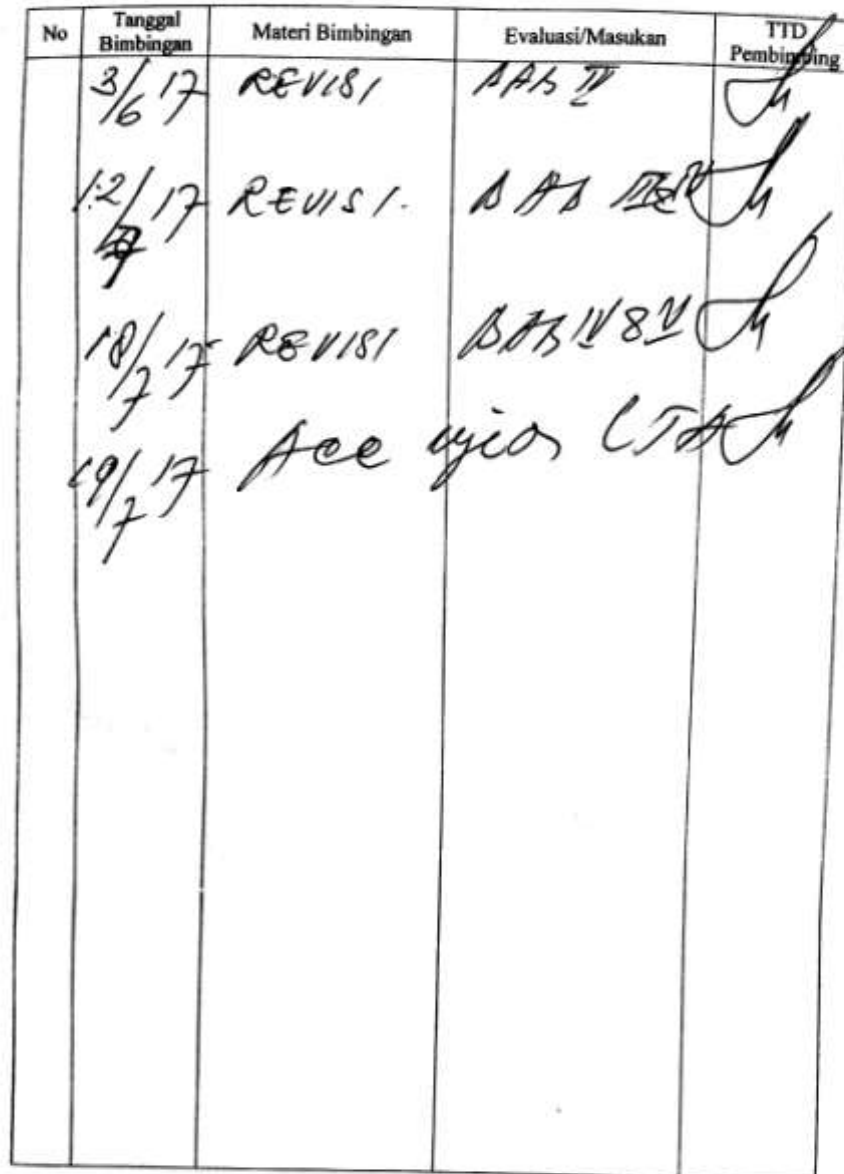 No Tanggal Bimbingan Materi Bimbingan Evaluasi/Masukan TTD Pembimbing
3/6 17 REVISI BAB IV
12/7 17 REVISI. BAB
18/7 17 REVISI BAB IV & V
19/7 17 Acc ujian LTA